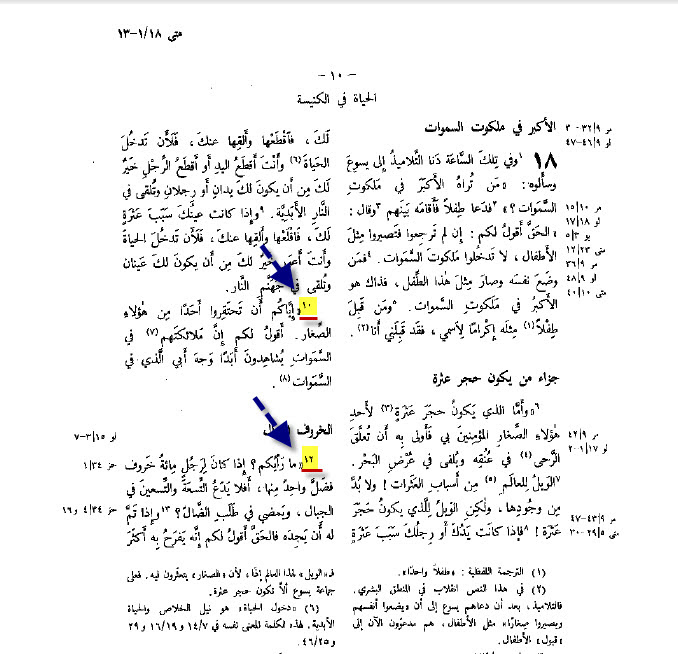 متى ١/١٨-١٣
- ١٠ -
الحياة في الكنيسة
الأكبر في ملكوت السموات
مر ٩/٣٢-٣٠
لو ٩/٤٦-٤٧
١٨ ١وفي تِلكَ السَّاعَةِ دَنا التَّلاميذُ إِلى يسوعَ
وسأَلوه: «مَن تُراهُ الأَكبَرُ في مَلَكوتِ
السَّمٰوات؟» ٢فدَعا طِفلاً فأَقامَه بَينَهم ٣وقال:
«الحَقَّ أَقولُ لكم: إِن لم تَرجعوا فتَصيروا مِثلَ
الأَطفال، لا تَدخُلوا مَلَكوتَ السَّمٰوات. ٤فمَن
وضَعَ نفسَه وصارَ مِثلَ هٰذا الطِّفل، فذاك هو
الأَكبرُ في مَلَكوتِ السَّمٰوات. ٥ومَن قَبِلَ
طِفلاً (١) مِثلَه إِكرامًا لِاسمي، فقد قَبِلَني أَنا (٢).
مر ١٥/١٠
لو ١٧/١٨
يو ٥/٣
متى ١٢/٢٣
مر ٣٦/٩
لو ٤٨/٩
متى ٤٠/١٠
جزاء من يكون حجر عثرة
٦«وأَمَّا الَّذي يَكونُ حجَرَ عَثرَةٍ (٣) لأَحدِ
هٰؤلاءِ الصِّغارِ المُؤمِنينَ بي فأَولى بِه أَن تُعلَّقَ
الرَّحى (٤) في عُنُقِه ويُلقى في عُرْضِ البَحْر.
٧الوَيلُ لِلعالَمِ (٥) مِن أَسبابِ العَثَرات! ولا بُدَّ
مِن وجُودِها، ولٰكِنِ الوَيلُ لِلَّذي يَكونُ حَجَرَ
عَثرَة! ٨فإِذا كانَت يَدُكَ أَو رِجلُكَ سَبَبَ عَثرَةٍ
مر ٤٢/٩
لو ١/١٧-٢
مر ٤٣/٩-٤٧
متى ٢٩/٥-٣٠
لَكَ، فاَقطَعْها وأَلقِها عنكَ، فَلَأَن تَدخُلَ
الحَياةَ (٦) وأَنتَ أَقطَعُ اليَدِ أَو أَقطَعُ الرِّجْلِ خَيرٌ
لَكَ مِن أَن يكونَ لَكَ يدانِ أَو رِجلانِ وتُلقى في
النَّارِ الأَبَدِيَّة. ٩وإِذا كانت عينُكَ سَبَبَ عَثرَةٍ
لَكَ، فاَقلَعْها وأَلقِها عنكَ، فَلَأَن تَدخُلَ الحياةَ
وأَنتَ أَعوَرُ خيرٌ لكَ مِن أَن يكونَ لكَ عَينان
وتُلقى في جَهَنَّمِ النَّار.
١٠«إِيَّاكم أَن تَحتَقِروا أَحَدًا مِن هٰؤلاءِ
الصِّغار. أَقولُ لكم إِنَّ ملائكتَهم (٧) في
السَّمٰواتِ يُشاهِدونَ أَبَدًا وَجهَ أَبي الَّذي في
السَّمٰوات (٨).
الخروف الضال
لو ٣/١٥-٧
١٢«ما رَأْيُكم؟ إِذا كانَ لِرَجُلٍ مِائةُ خَروف
فضَلَّ واحِدٌ مِنها، أَفلا يَدَعُ التِّسعَةَ والتِّسعينَ في
الجِبال، ويَمضي في طَلَبِ الضَّالّ؟ ١٣وإِذا تَمَّ
له أَن يَجِدَه فالحَقَّ أَقولُ لكم إِنَّه يَفرَحُ بِه أَكثَرَ
حز ١/٣٤
حز ٤/٣٤ و ١٦
(١) الترجمة اللفظية: «طفلاً واحدًا».
(٢) في هذا النص انقلاب في المنطق البشري.
فالتلاميذ، بعد أن دعاهم يسوع إلى أن «يضعوا أنفسهم
ويصيروا صغارًا» مثل الأطفال، هم مدعوّون الآن إلى
«قبول» الأطفال.
فـ«الويل» لهذا العالم إذًا، لأن «الصغار» يتعثّرون فيه. فعلى
جماعة يسوع ألاّ تكون حجر عثرة.
(٦) «دخول الحياة» هو نيل الخلاص والحياة
الأبدية. لهذه الكلمة المعنى نفسه في ١٤/٧ و ١٦/١٩ و ٢٩
و ٤٦/٢٥.